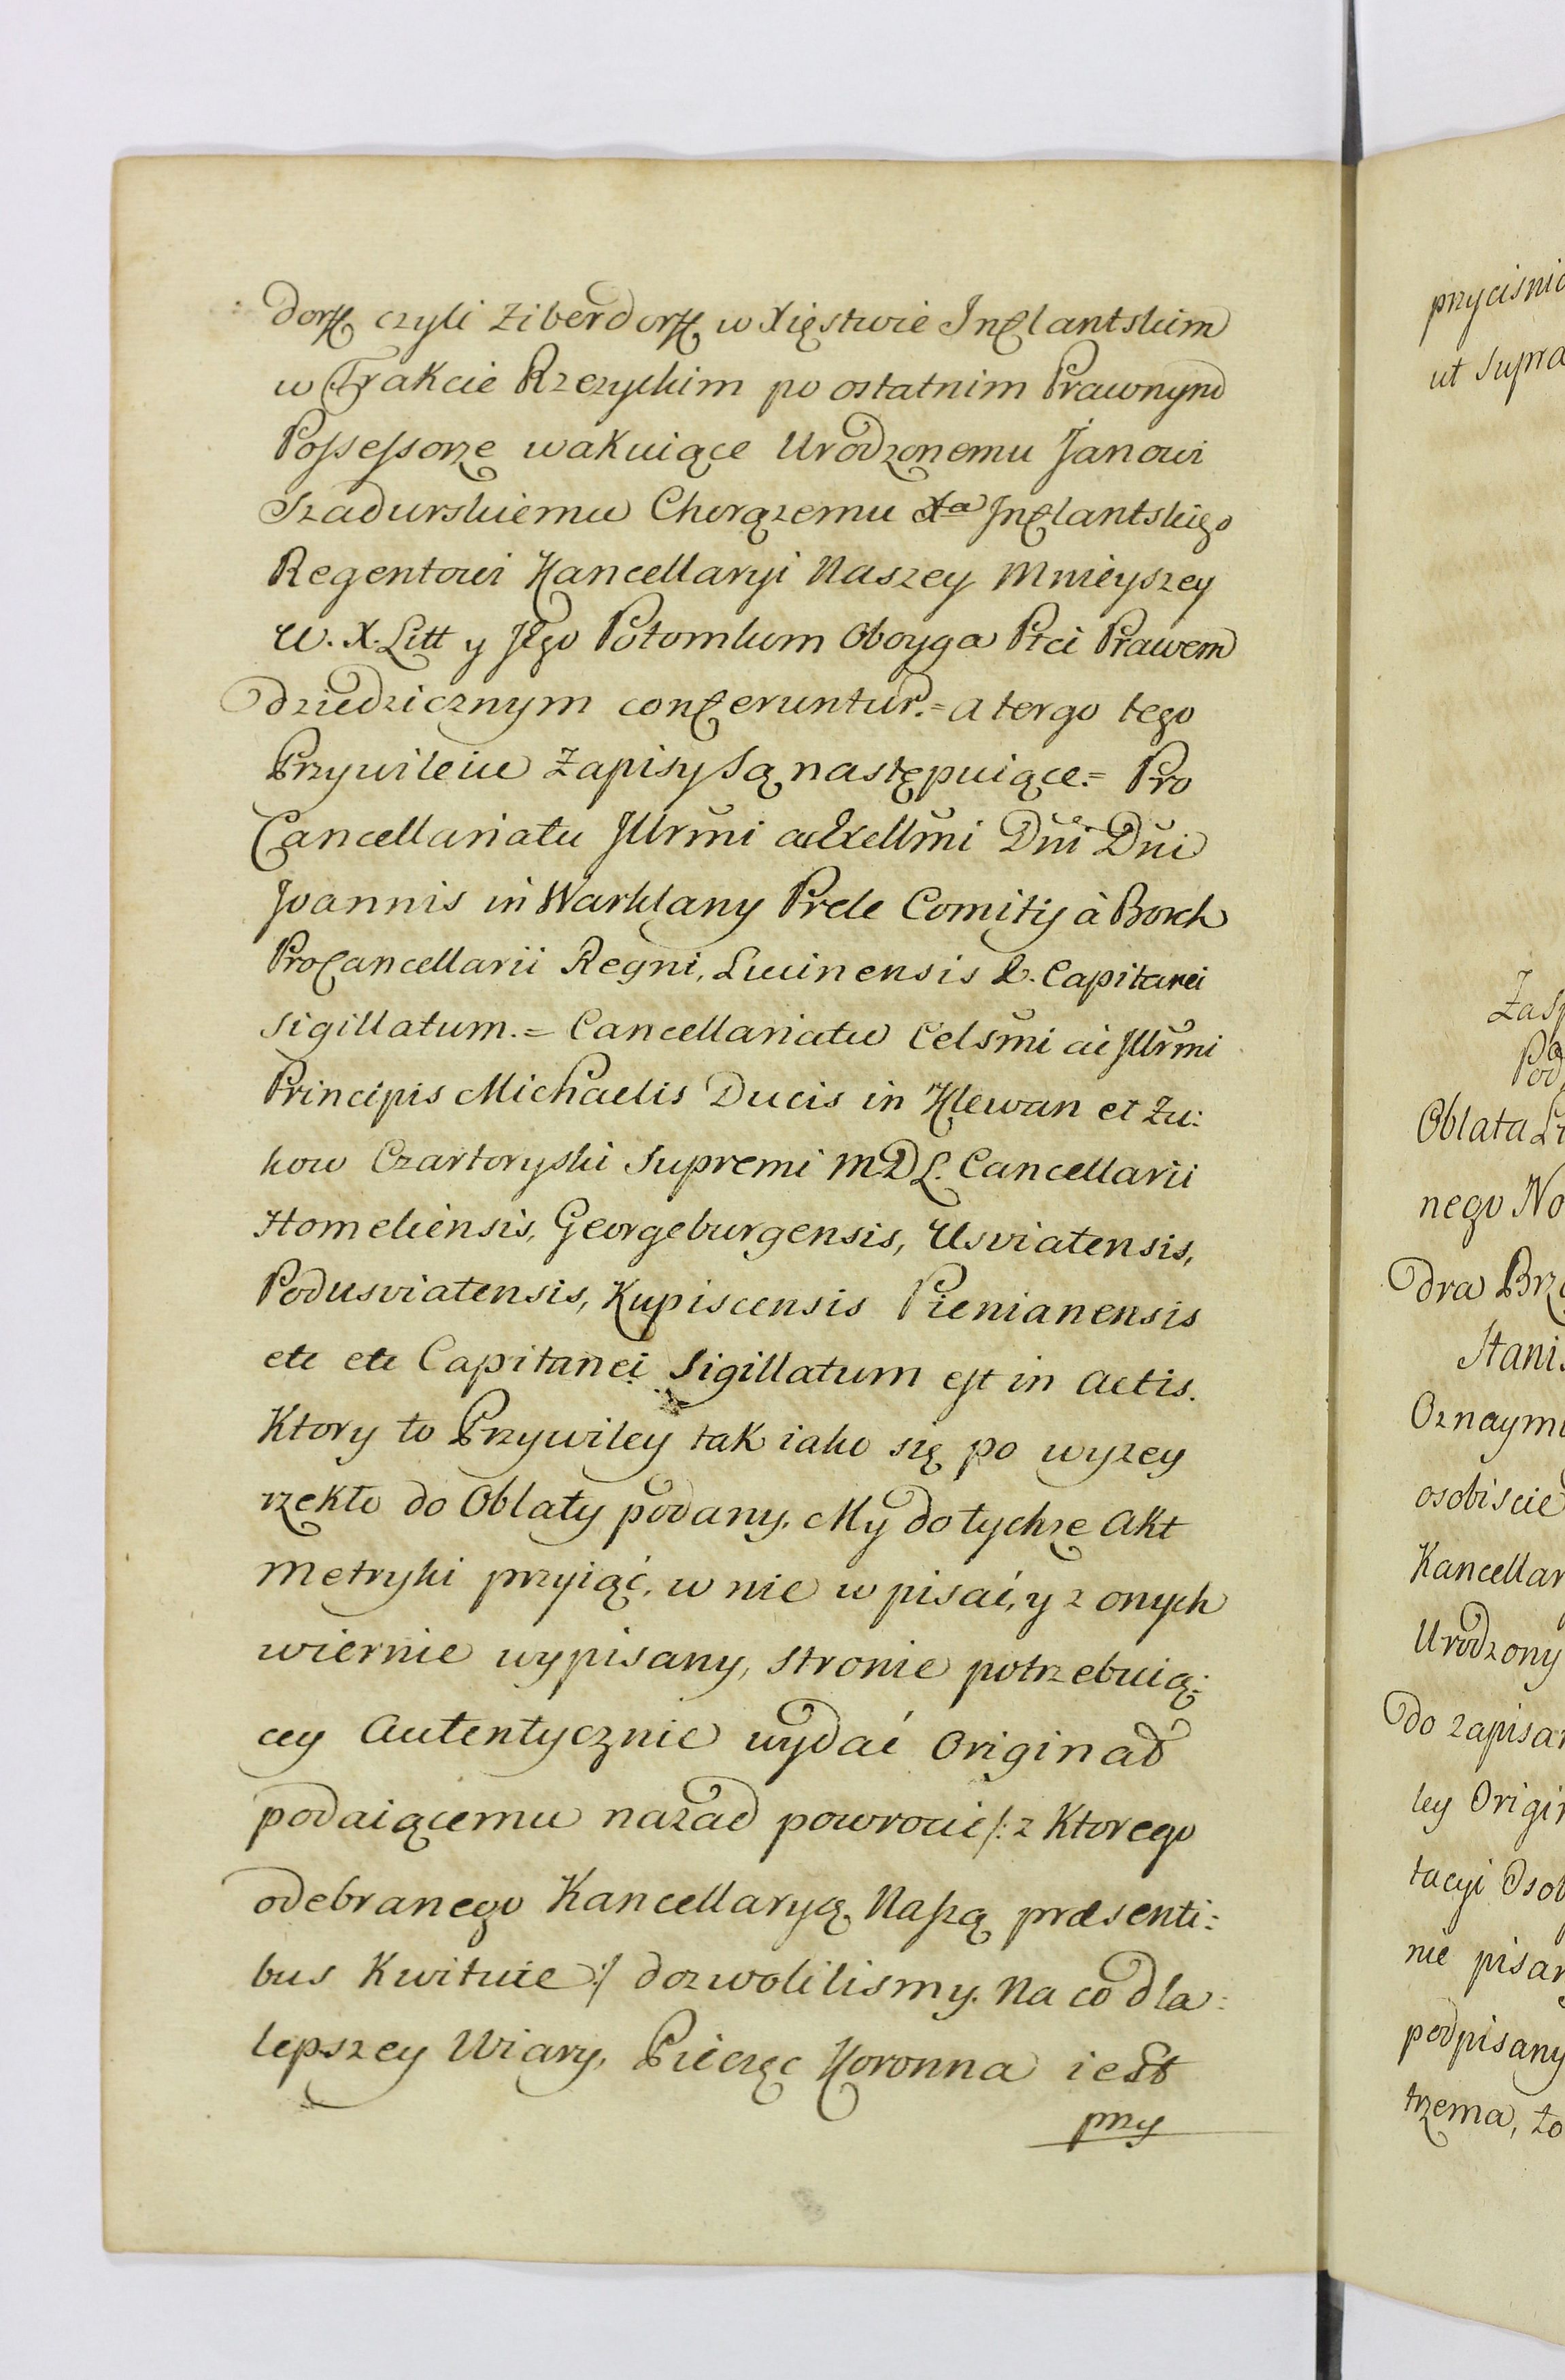 dorff czyli Ziberdorff w Xięstwie Inflantskim
w Trakcie Rzezyckim po ostatnim Prawnym
Possessorze wakuiące Urodzonemu Janowi
Szadurskiemu Chorązemu Xa Inflantskiego
Regentowi Kancellaryi Naszey Mnieyszey
W. X. Litt y Jego Potomkom Oboyga Płci Prawem
dziedzicznym conferuntur. = a tergo tego
Przywileiu Zapisy Są następuiące. = Pro
Cancellariatu Jllrmi ac Excellmi Dni Dni
Joannis in Warklany Prele Comitis à Borch
ProCancellarii Regni, Lucinensis &. Capitanei
Sigillatum. = Cancellariatu Celsmi ac Jllrmi
Principis Michaelis Ducis in Klewan et Zu:
kow Czartoryski Supremi M D L. Cancellarii
Homeliensis, Georgeburgensis, Usviatensis,
Podusviatensis, Kupiscensis Pienianensis
etc etc Capitanei Sigillatum est in Actis.
Ktory to Przywiley tak iako się po wyzey
rzekło do Oblaty podany. My do tychze Akt
Metryki przyiąć, w nie w pisać, y z onych
wiernie wypisany, stronie potrzebuią:
cey Autentycznie wydać Originał
podaiącemu nazad powrocić /: z Ktorego
odebranego Kancellaryą Naszą præsenti:
bus Kwituie :/ dozwolilismy. Na co dla
lepszey Wiary, Pieczęc Koronna iest
przy
przycisnio
ut Supra
Zasp
Pod
Oblata Li
nego No
dra Brz
Stanis
Oznaymu
osobiscie
Kancellar
Urodzony
do zapisan
ley Origin
tacyi Osob
nie pisan
podpisany
trzema, to